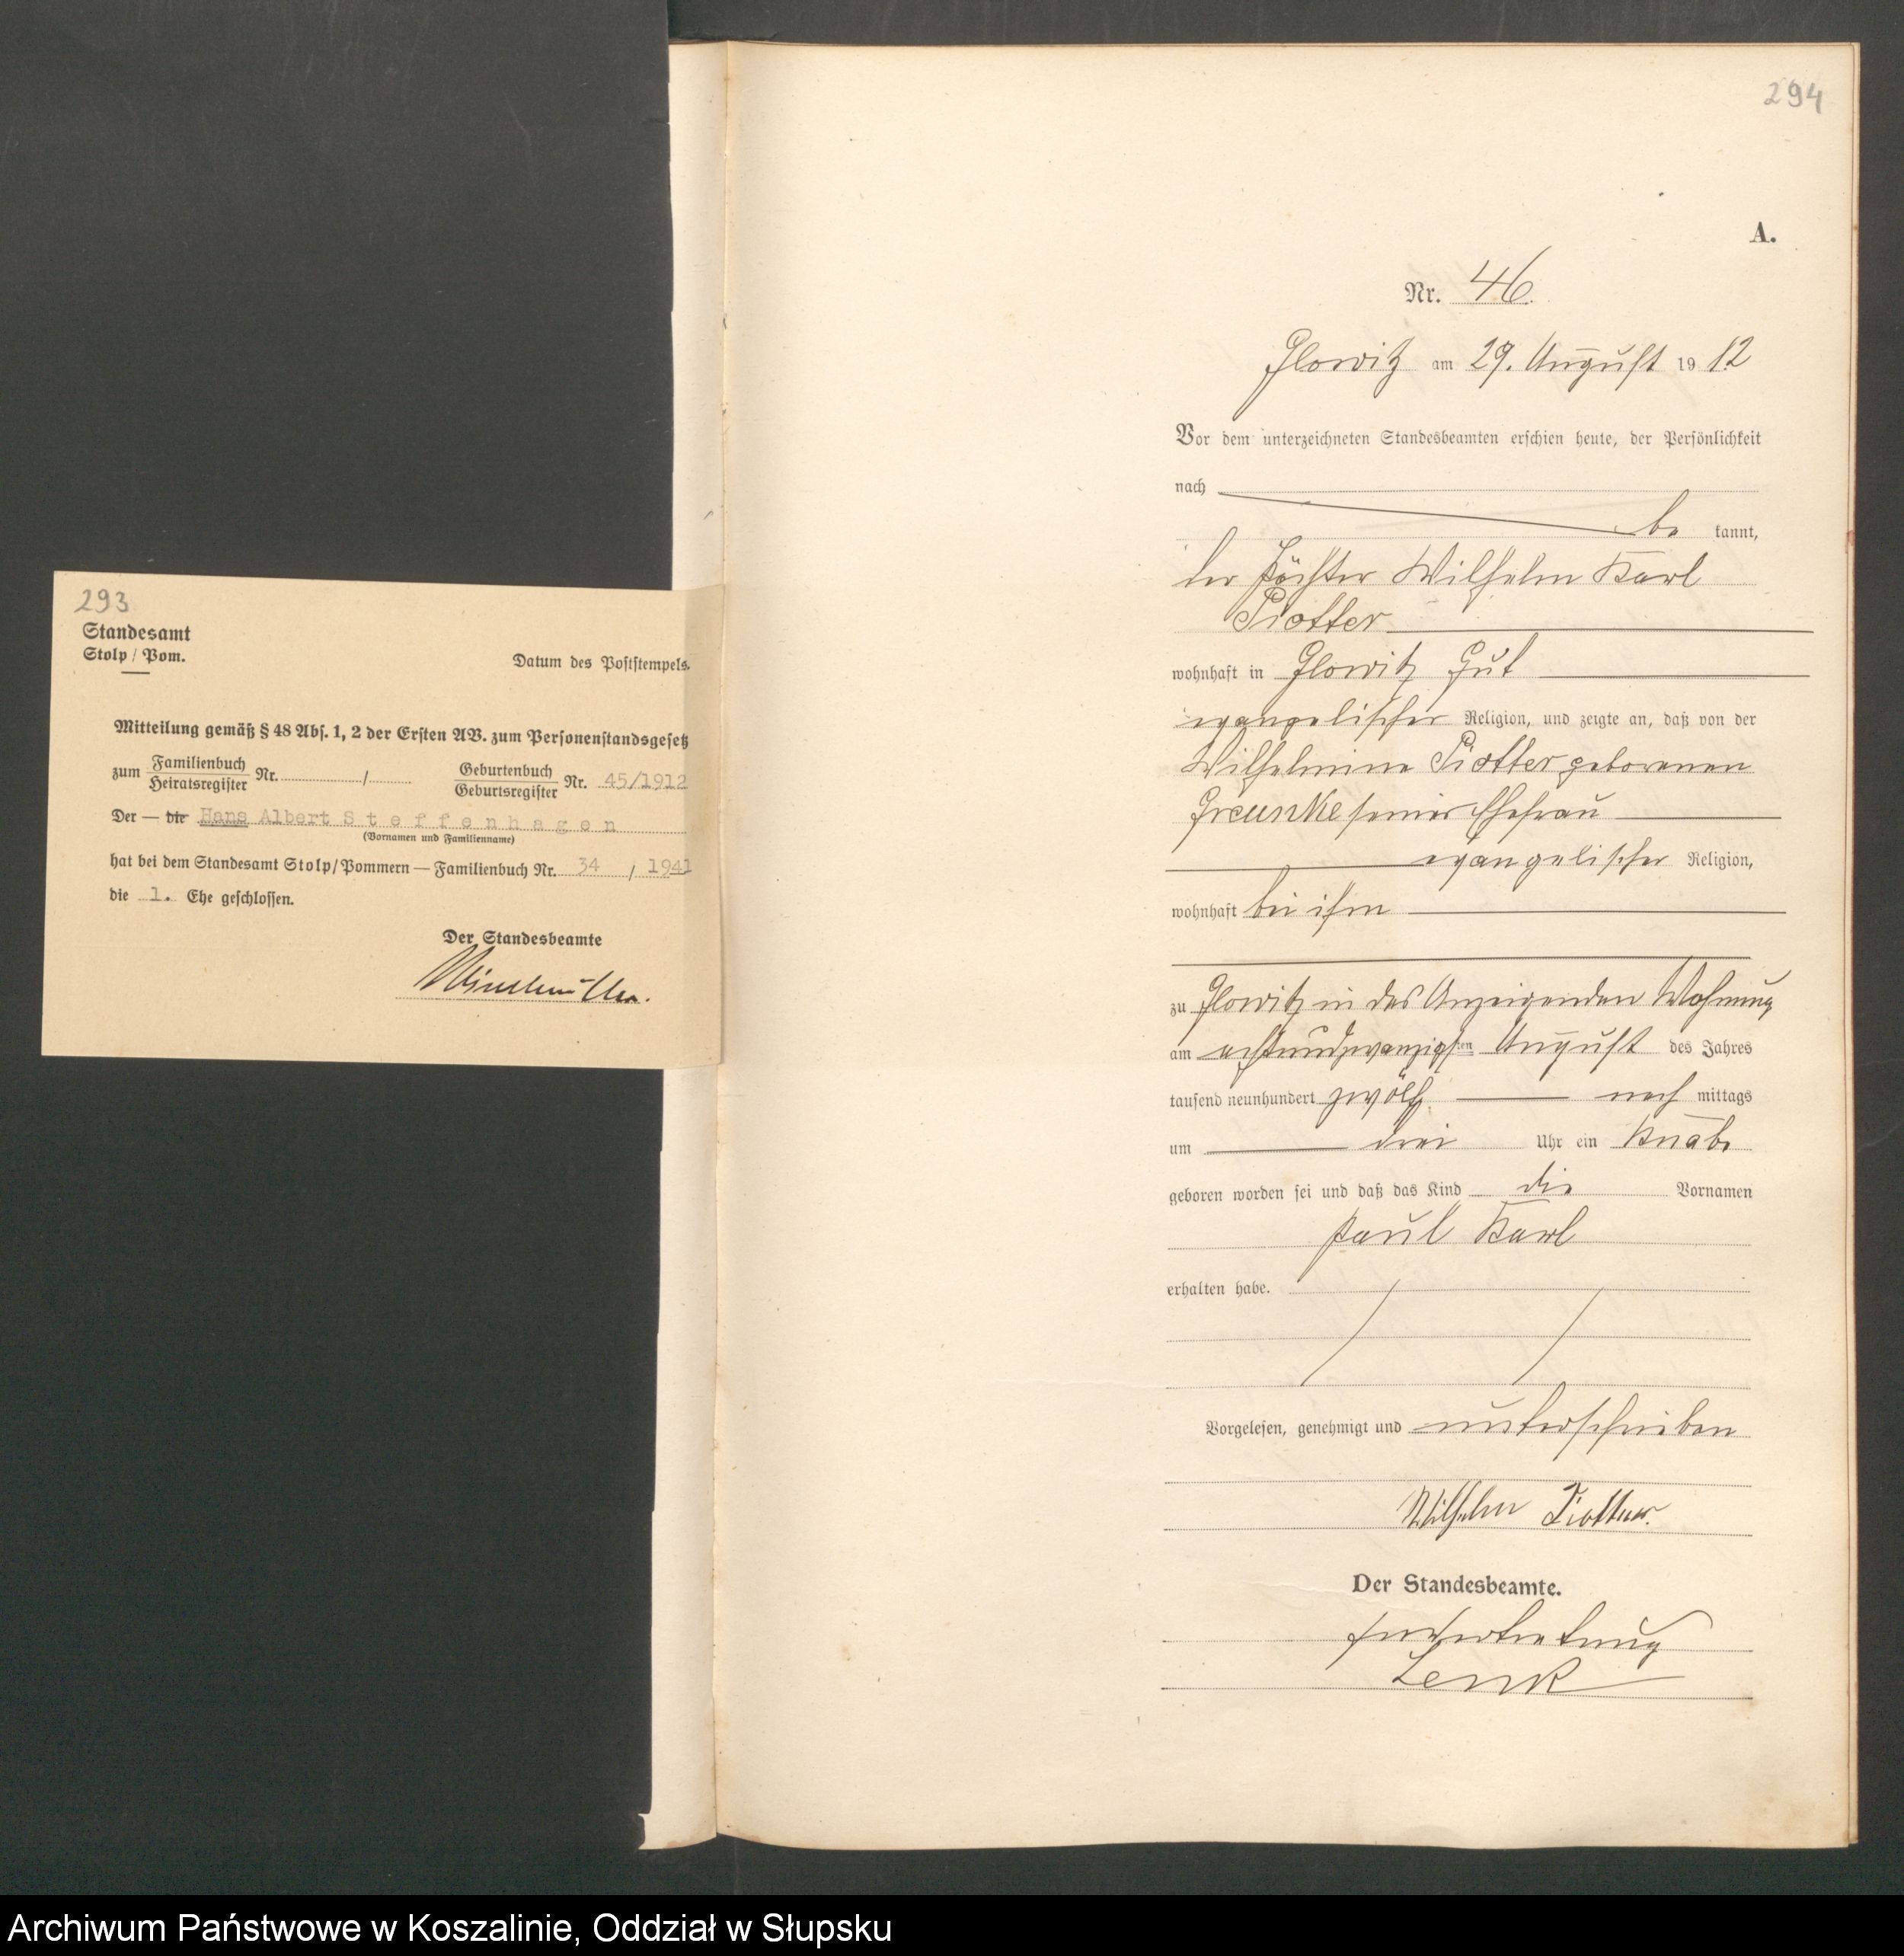 293
Standesamt
Stolp / Pom.
Datum des Poststempels.
Mitteilung gemäß § 48 Abs. 1, 2 der Ersten AV. zum Personenstandsgesetz
zum Familienbuch / Heiratsregister Nr. / Geburtenbuch / Geburtsregister Nr. 45/1912
Der — die Hans Albert Steffenhagen
(Vornamen und Familienname)
hat bei dem Standesamt Stolp/Pommern — Familienbuch Nr. 34 / 1941
die 1. Ehe geschlossen.
Der Standesbeamte
294
A.
Nr. 46.
Glowitz am 29. August 1912
Vor dem unterzeichneten Standesbeamten erschien heute, der Persönlichkeit
nach
be kannt,
der Pächter Wilhelm Karl
Piotter
wohnhaft in Glowitz Gut
evangelischer Religion, und zeigte an, daß von der
Wilhelmine Piotter geborenen
Greunke seiner Ehefrau
evangelischer Religion,
wohnhaft bei ihm
zu Glowitz in des Anzeigenden Wohnung
am achtundzwanzigsten August des Jahres
tausend neunhundert zwölf nach mittags
um drei Uhr ein Knabe
geboren worden sei und daß das Kind die Vornamen
Paul Karl
erhalten habe.
Vorgelesen, genehmigt und unterschrieben
Wilhelm Piotter.
Der Standesbeamte.
In Vertretung
Lenk
Archiwum Państwowe w Koszalinie, Oddział w Słupsku